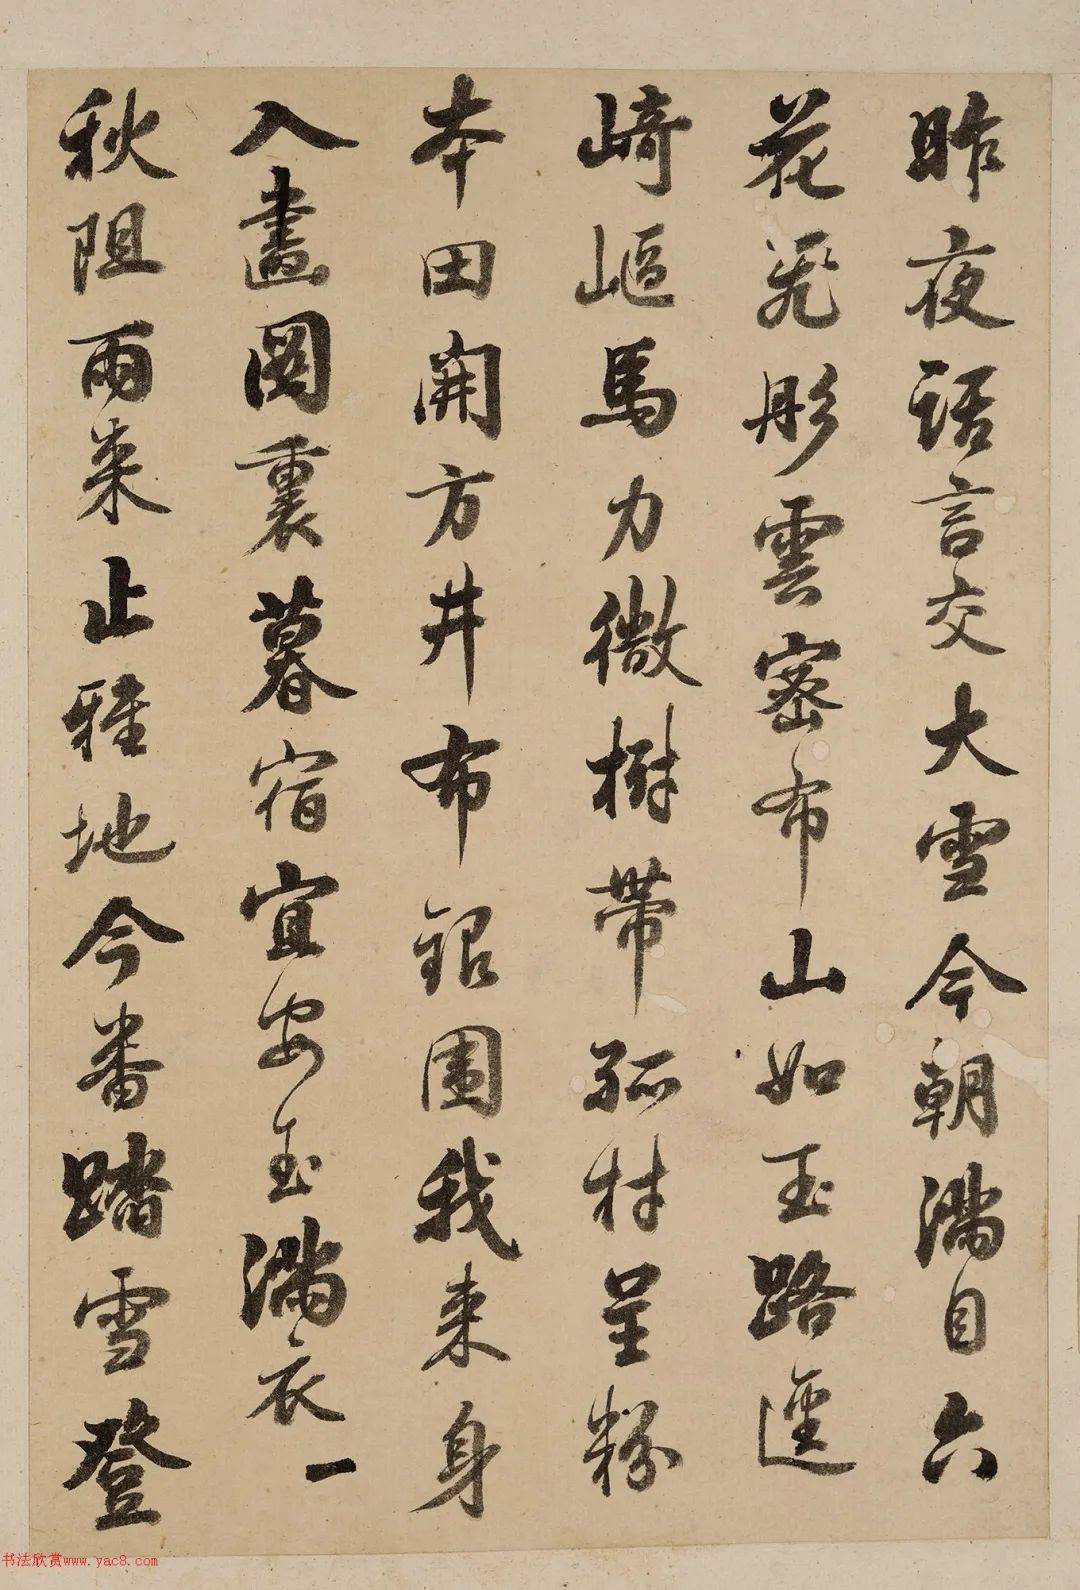 昨夜話言交大雪今朝滿目六
花飛彤雲密布山如玉路逕
崎嶇馬力微樹帶孤村呈粉
本田開方井布銀圍我來身
入畫圖裏暮宿宜安玉滿衣一
秋阻雨來止雅地今番踏雪登
书法欣赏www.yac8.com